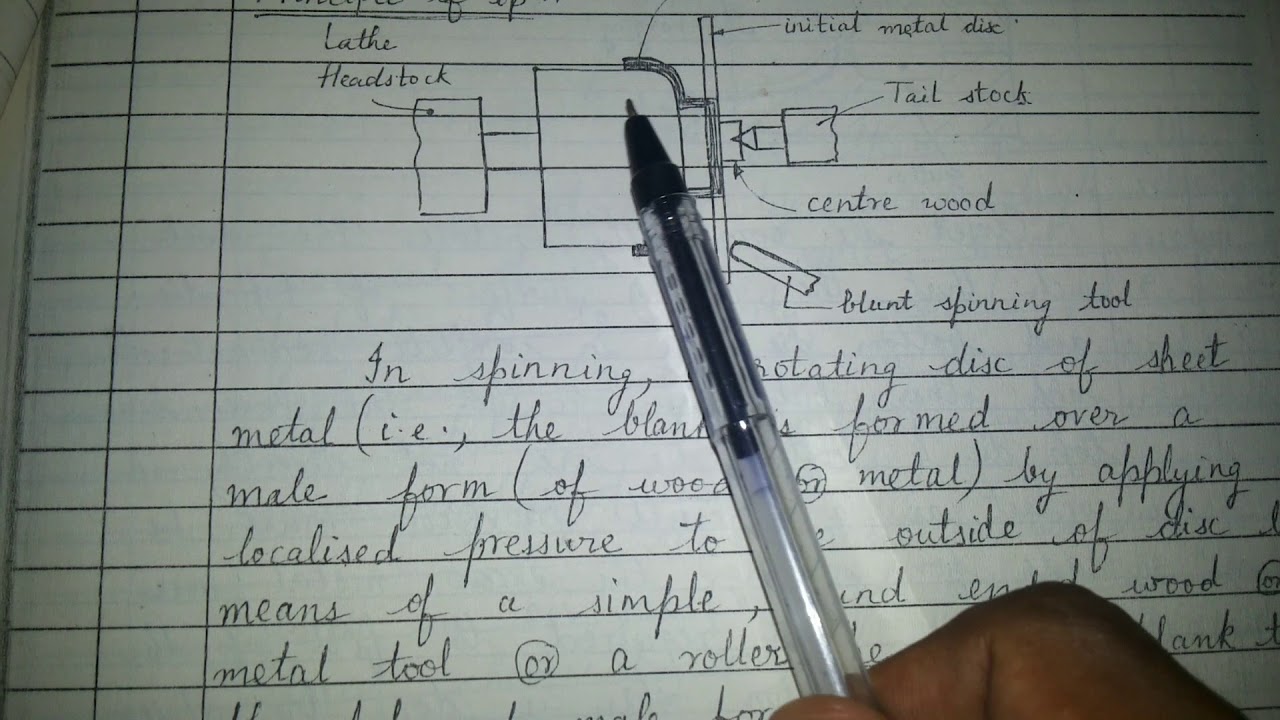 Principle of
Lathe
Headstock
initial metal disc
Tail stock
centre wood
blunt spinning tool
In spinning, rotating disc of sheet
metal (i.e., the blank is formed over a
male form (of wood or metal) by applying
localised pressure to outside of disc
means of a simple, ended wood or
metal tool or a roller blank
male